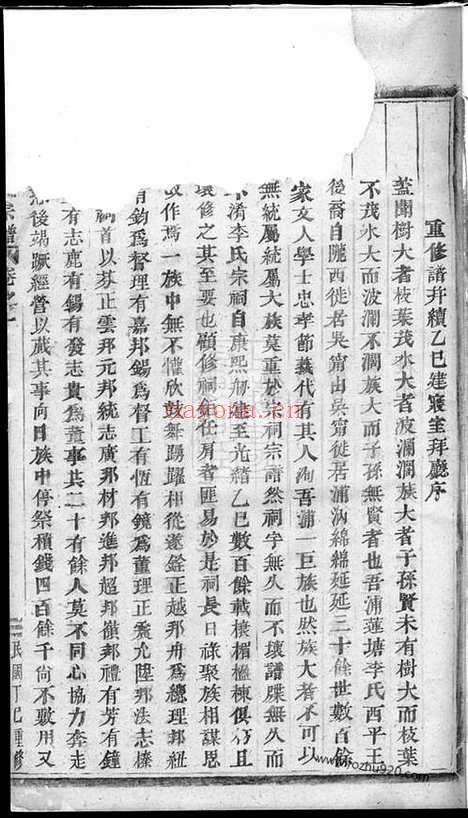 重修譜并續乙巳建寢室拜廳序
蓋聞樹大者枝葉茂水大者波瀾濶族大者子孫賢未有樹大而枝葉
不茂水大而波瀾不濶族大而子孫無賢者也吾浦蓮塘李氏西平王
後裔自隴西徙居吳甯由吳甯徙居浦汭綿綿延延三十餘世數百餘
家文人學士忠孝節義代有其人洵吾浦一巨族也然族大者不可以
無統屬統屬大族莫重於宗祠宗譜然祠宇無久而不壞譜牒無久而
不淆李氏宗祠自康熙 至光緒乙巳數百餘載榱楣楹棟俱朽且
壞修之其至也顧修祠重任肩者匪易於是祠長日祿聚族相謀恩
改作焉一族中無不懽欣鼓舞踴躍相從遂銓正越邦舟爲總理邦紐
有鈞爲督理有嘉邦錫爲督工有恆有鏡爲董理正堯允陞邦法志榛
綱首以芬正雲邦元邦統志廣邦材邦進邦超邦嶺邦禮有芳有鐘
有志庭有錫有發志貴爲董事共二十有餘人莫不同心協力奔走
後竭蹶經營以蕆其事向日族中停祭積錢四百餘千尚不敷用又
宗譜 卷之
民國丁巳重修
www.fozhu920.com